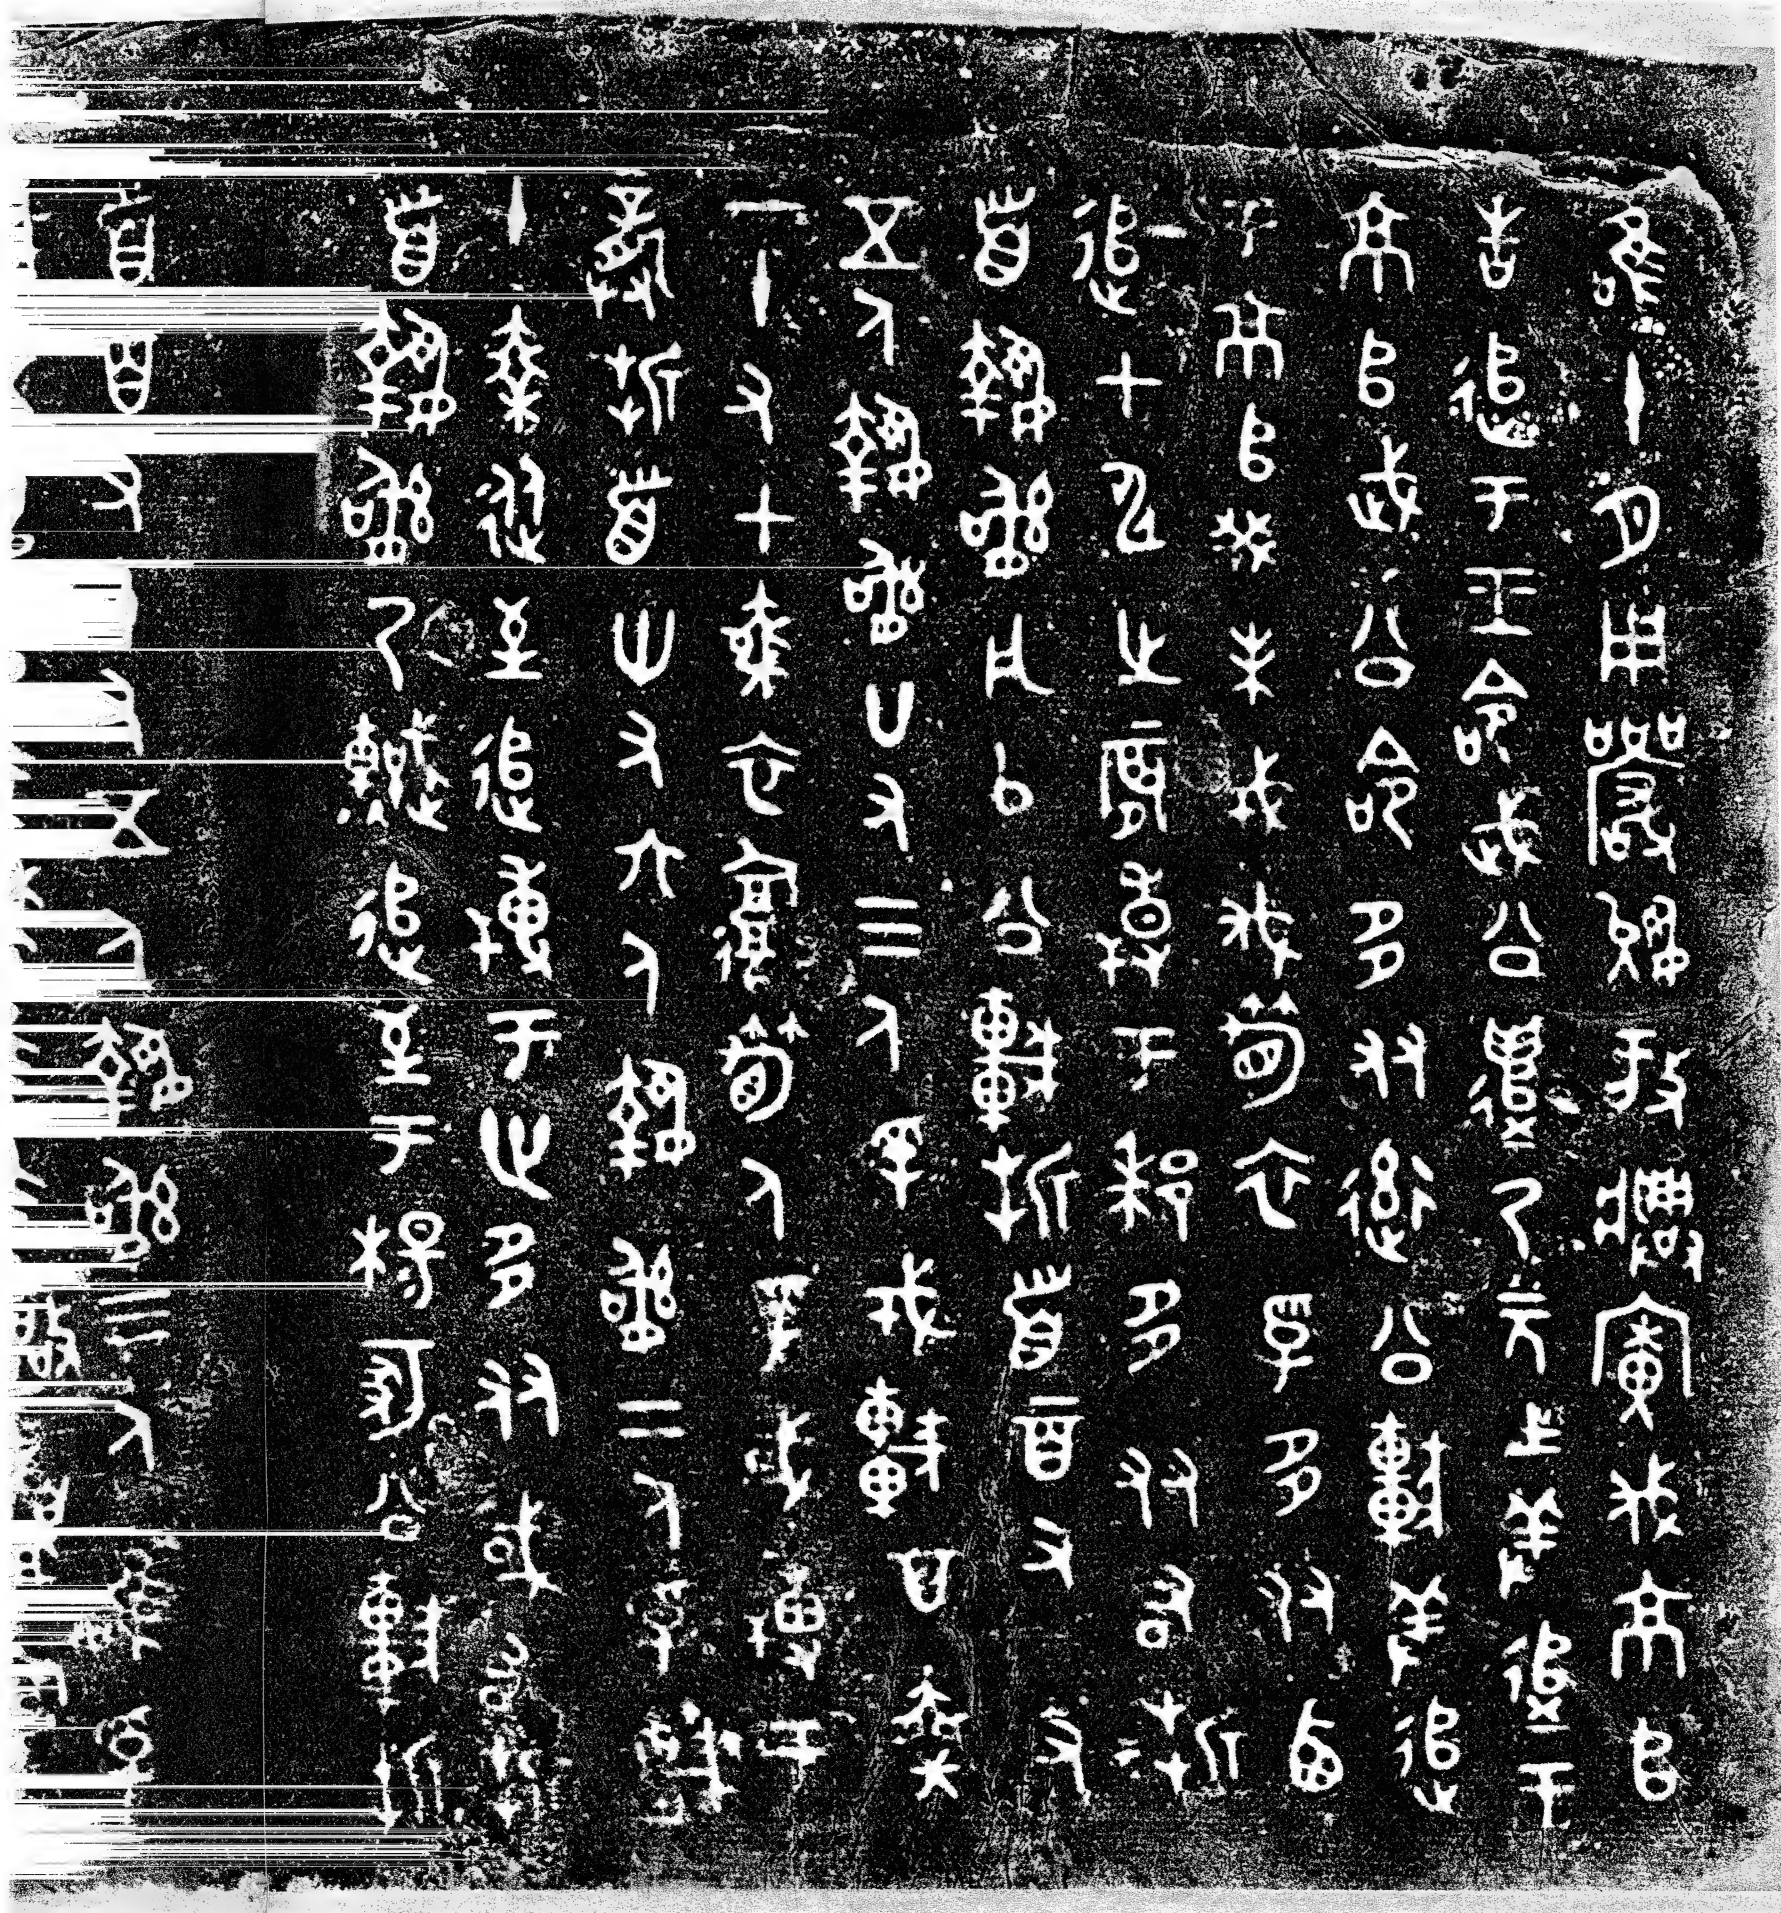 唯十月用嚴𤞤放興廣伐京𠂤
告追于王命武公遣乃元士羞追于
京𠂤武公命多友率公車羞追于
京𠂤癸未戎伐筍衣孚多友西
追甲申之脣搏于郲多友右折
首執訊凡以公車折首二百又又
五人執訊廿又三人孚戎車百乘
一十又七乘衣復筍人孚或搏于
龏折首卅又六人執訊二人孚車
十乘從至追搏于世多友或又折
首執訊乃𨖍追至于楊冢公車折
首百又又五人執訊三人唯孚